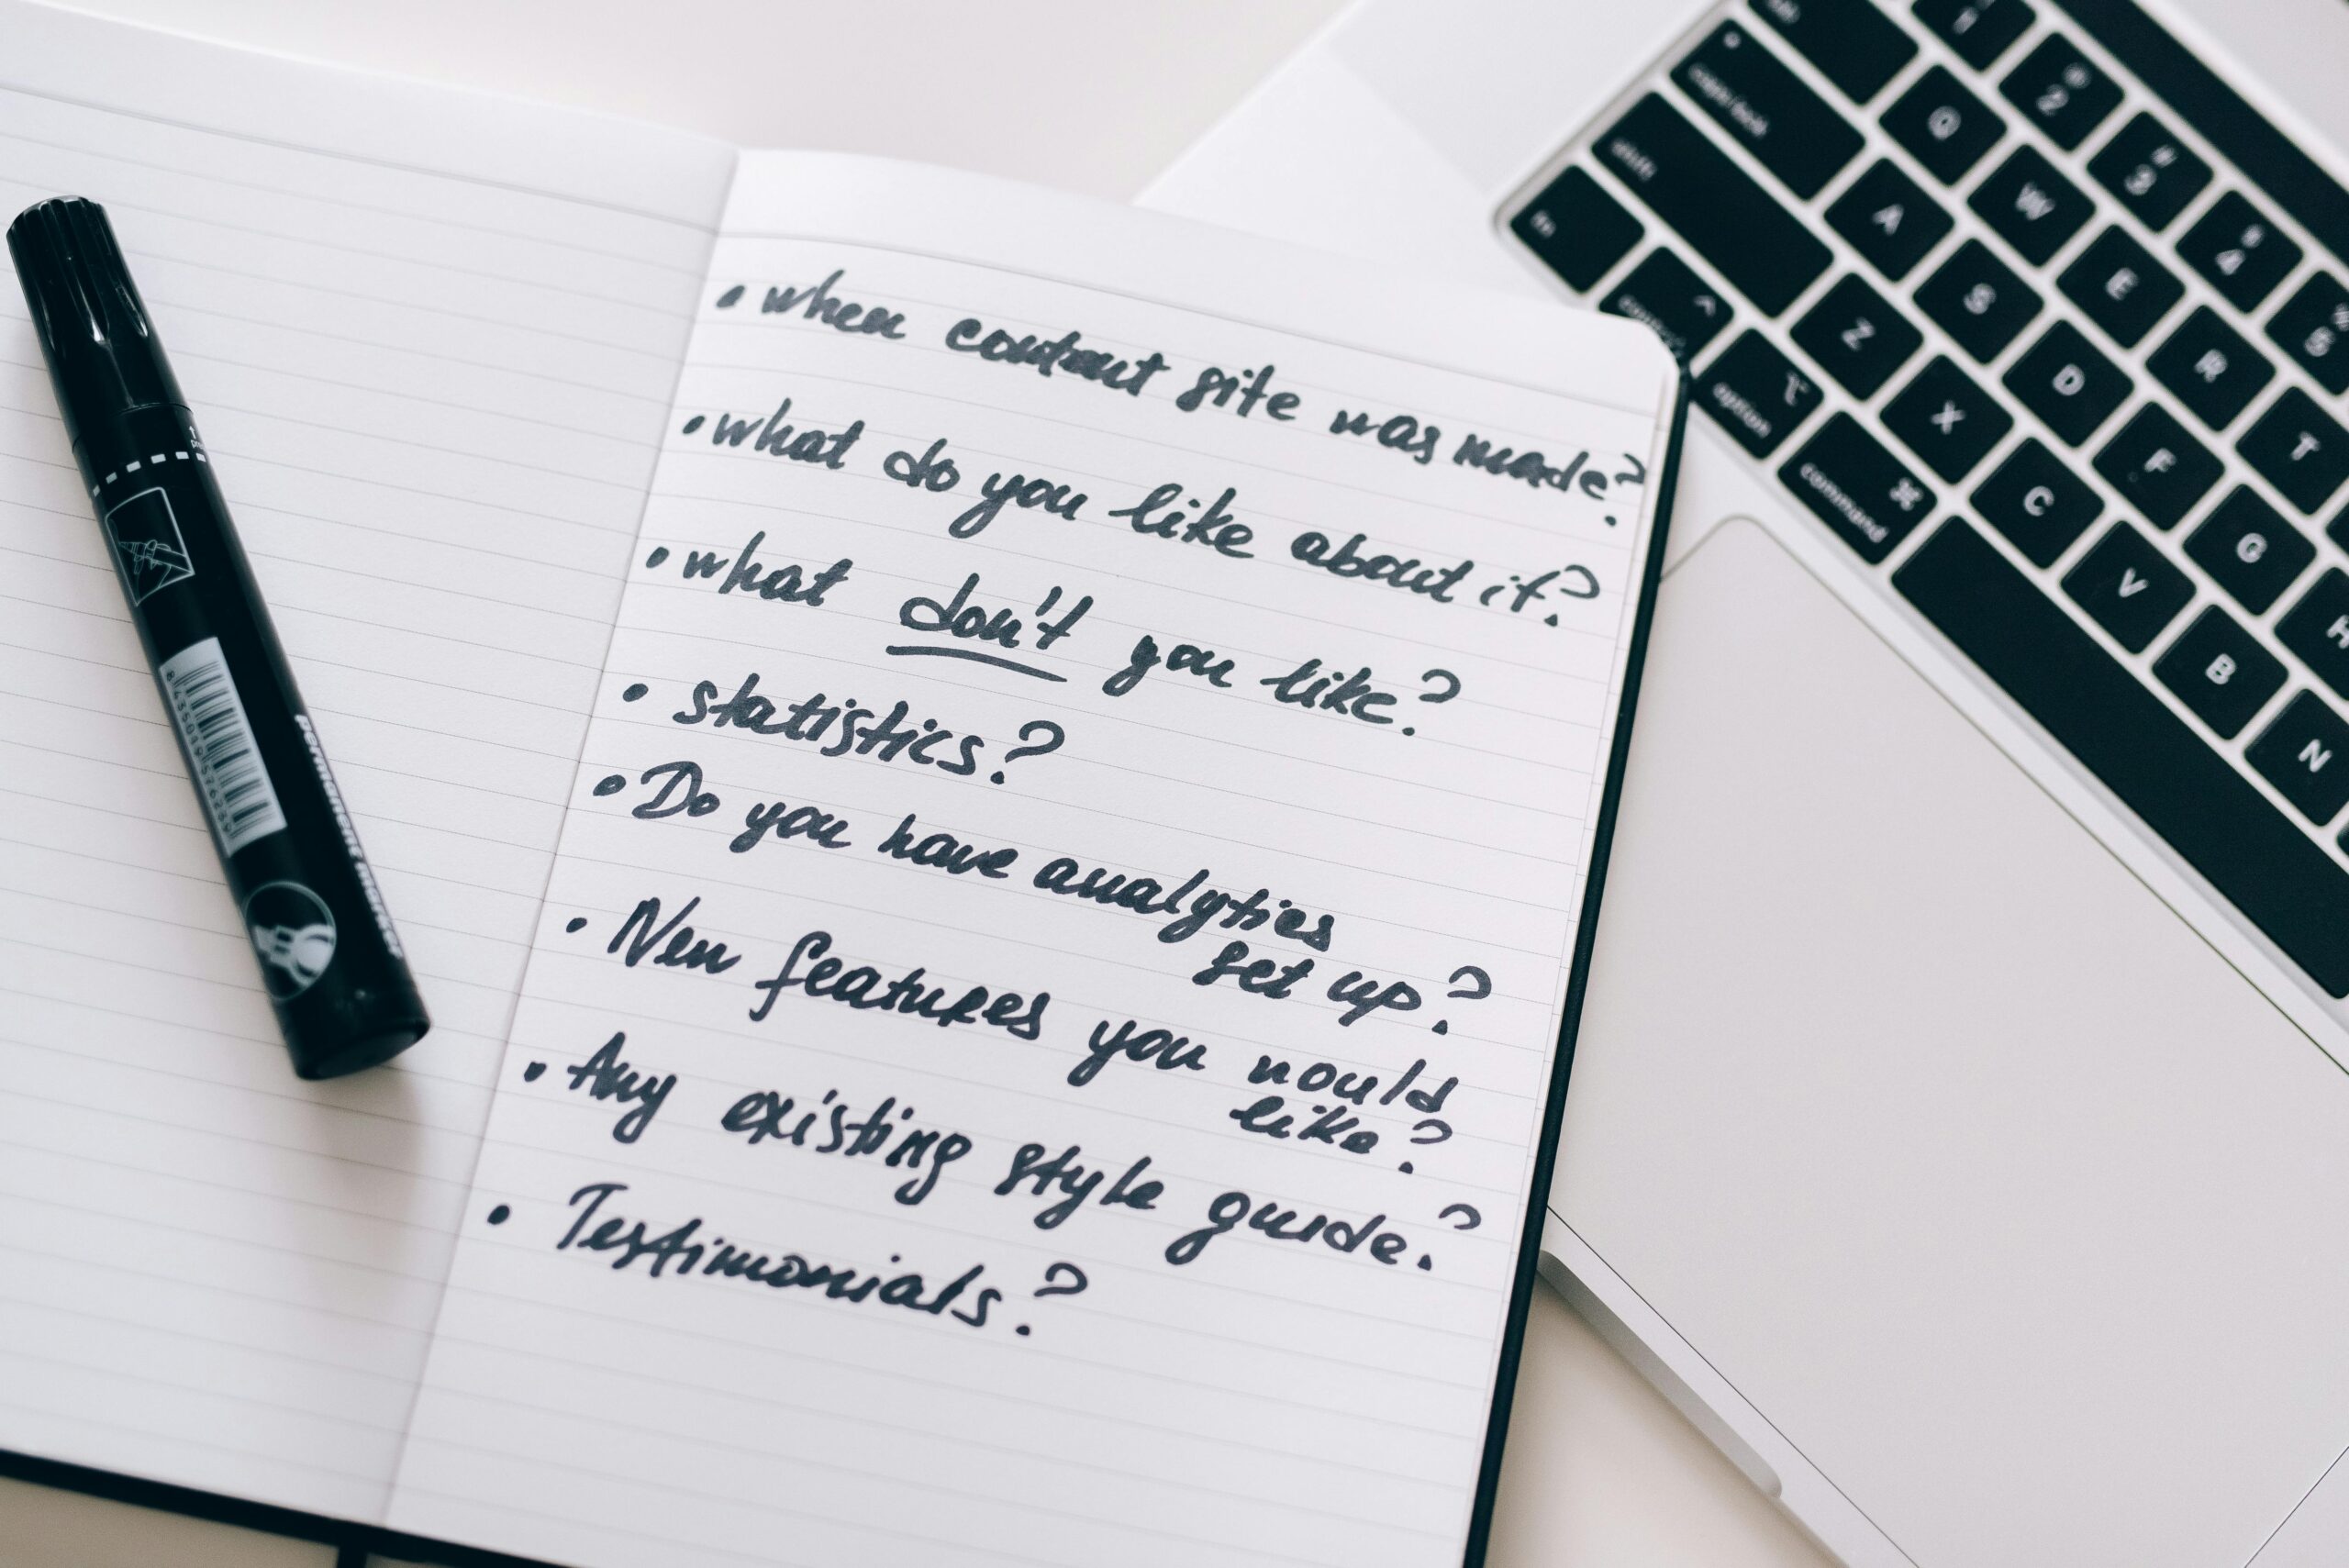 • when content site was made?
• what do you like about it?
• what don't you like?
• statistics?
• Do you have analytics
set up?
• New features you would
like?
• Any existing style guide?
• Testimonials?
permanent marker
caps lock
shift
fn
control
option
command
1
@ 2
# 3
$ 4
% 5
Q W E R T
A S D F G H
Z X C V B N